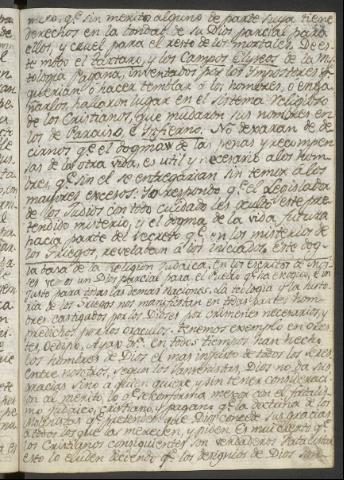 mero, q.e sin merito alguno de parte suya tiene
derechos en la bondad de su Dios parcial para
ellos, y cruel para el resto de los mortales. De es-
te modo el tartaro, y los Campos Eliseos de la Mi-
tologia Pagana, inventados por los Impostores q.e
querian o hacer temblar a los hombres, o enga-
ñarlos, hallaron lugar en el sistema religioso
de los Cristianos, que mudaron sus nombres en
los de Paraiso, e Infierno. No dexaran de de-
cirnos q.e el dogma de las penas y recompen-
sas de la otra vida, es util y necesario a los hom-
bres, q.e sin el se entregarian sin temor a los
mayores excesos: Yo respondo q.e el Legislador
de los Judios con todo cuidado les oculto este pre-
tendido misterio, y el dogma de la vida futura
hacia parte del secreto q.e en los misterios de
los Griegos, revelaban a los iniciados. Este dog-
la basa de la religion Judaica: en los escritos de Moi-
ses vemos un Dios parcial para el Pueblo q.e ha escogido, e in-
justo para todas las demas naciones. La teologia y la histo-
ria de los Griegos nos manifiestan en todas partes hom-
bres castigados por los Dioses por crimenes necesarios, y
predichos por los oraculos. Tenemos exemplo en Ores-
tes, Oedipo, Ayax &.a En todos tiempos han hecho
los hombres de Dios el mas injusto de todos los seres.
Entre nosotros, segun los Jansenistas, Dios no da sus
gracias sino a quien quiere, y sin tener consideraci-
on al merito, lo q.e es conforme mejor con el fatalis-
mo Judaico, Cristiano, y pagano, q.e la doctrina de los
Molinistas q.e pretenden que Dios concede sus gracias
a todos los que las merecen, y piden. Es mui cierto q.e
los Cristianos consiguientes son verdaderos Fatalistas.
esto lo eluden diciendo q.e los designios de Dios son